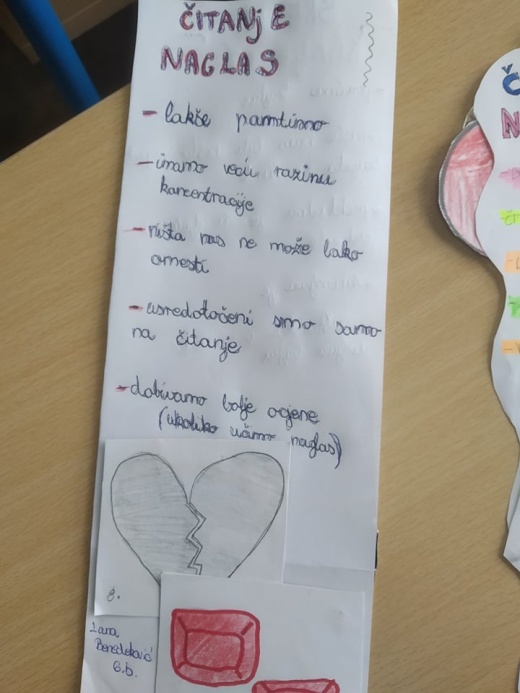 ČITANJE
NAGLAS
- lakše pamtimo
- imamo veću razinu
koncentracije
- ništa nas ne može lako
omesti
- usredotočeni smo samo
na čitanje
- dobivamo bolje ocjene
(ukoliko učimo naglas)
8.
6.b.